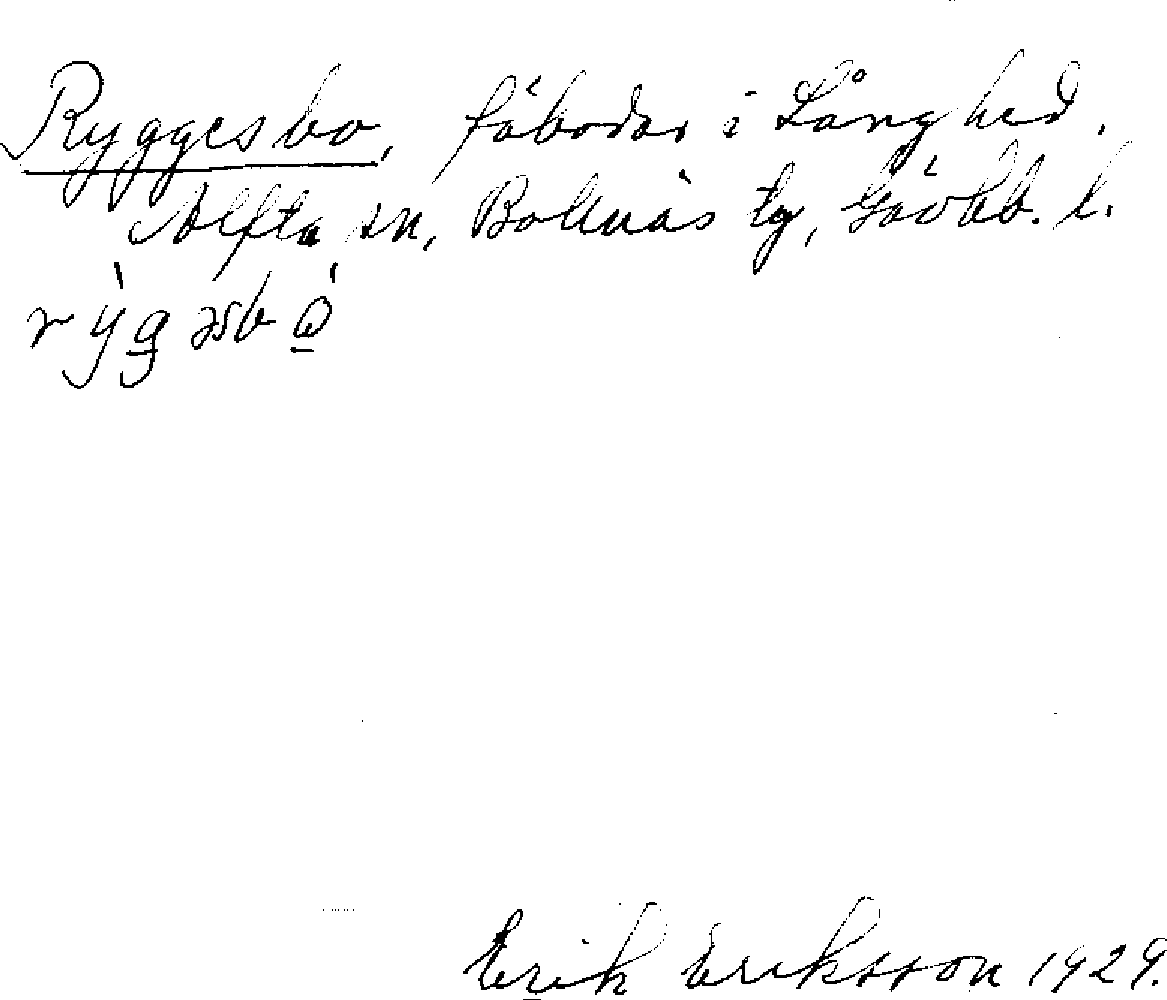 Ryggesbo, fäbodar i Långhed.
Alfta sn, Bollnäs tg, Gävleb. l.
rỳg̲əsbὼ̲
Erik Eriksson 1929.